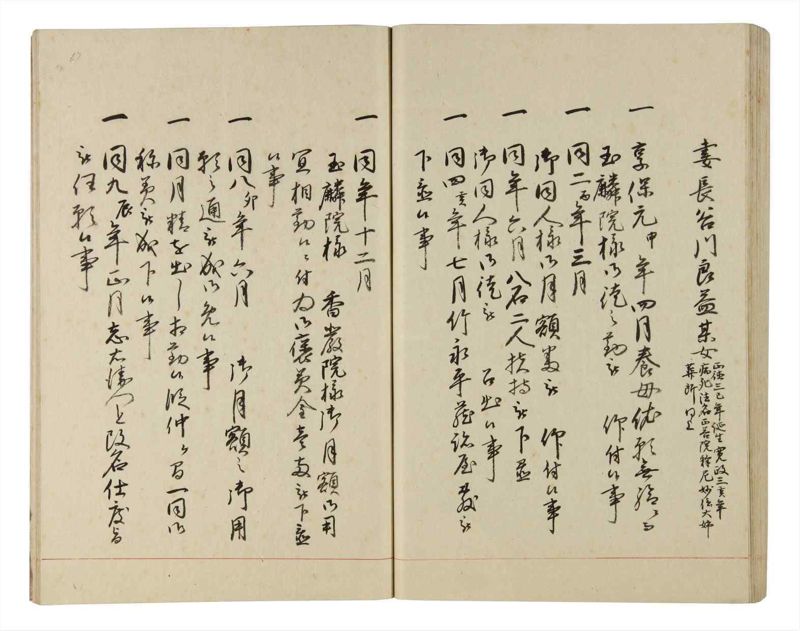 妻長谷川良益某女
正徳三巳年誕生寛政三亥年
病死法名正善院釋尼妙法大姉
葬所同上
一 享保元申年四月養母依願
玉麟院様御徒之勤被 仰付候事
一 同二酉年三月
御同人様御月額番被 仰付候事
一 同年六月八石二人扶持被下置
御同人様御徒被 召出候事
一 同四亥年七月竹永平
下置候事
一 同年十二月
玉麟院様 香巌院様御月額御用
宜相勤候ニ付為御褒美金壱両被下置
候事
一 同八卯年六月 御月額之御用
願之通被成御免候事
一 同月精を出し相勤候段仲ヶ間一同御
称美被成下候事
一 同九辰年正月志右衛門と改名仕度旨
被任願候事